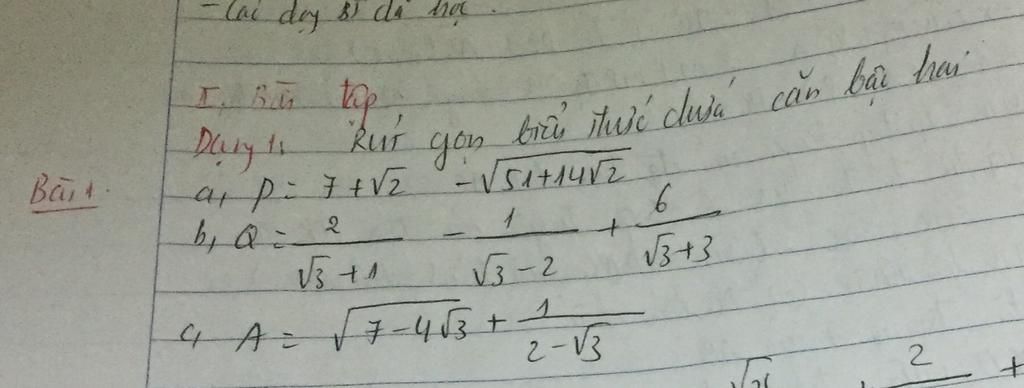 - Các dạng bài đã học.
I. Bài tập
Dạng 1: Rút gọn biểu thức chứa căn bậc hai
Bài 1.
a, P = 7 + √2 - √(51 + 14√2)
b, Q = 2/(√3 + 1) - 1/(√3 - 2) + 6/(√3 + 3)
c, A = √(7 - 4√3) + 1/(2 - √3)
2 +